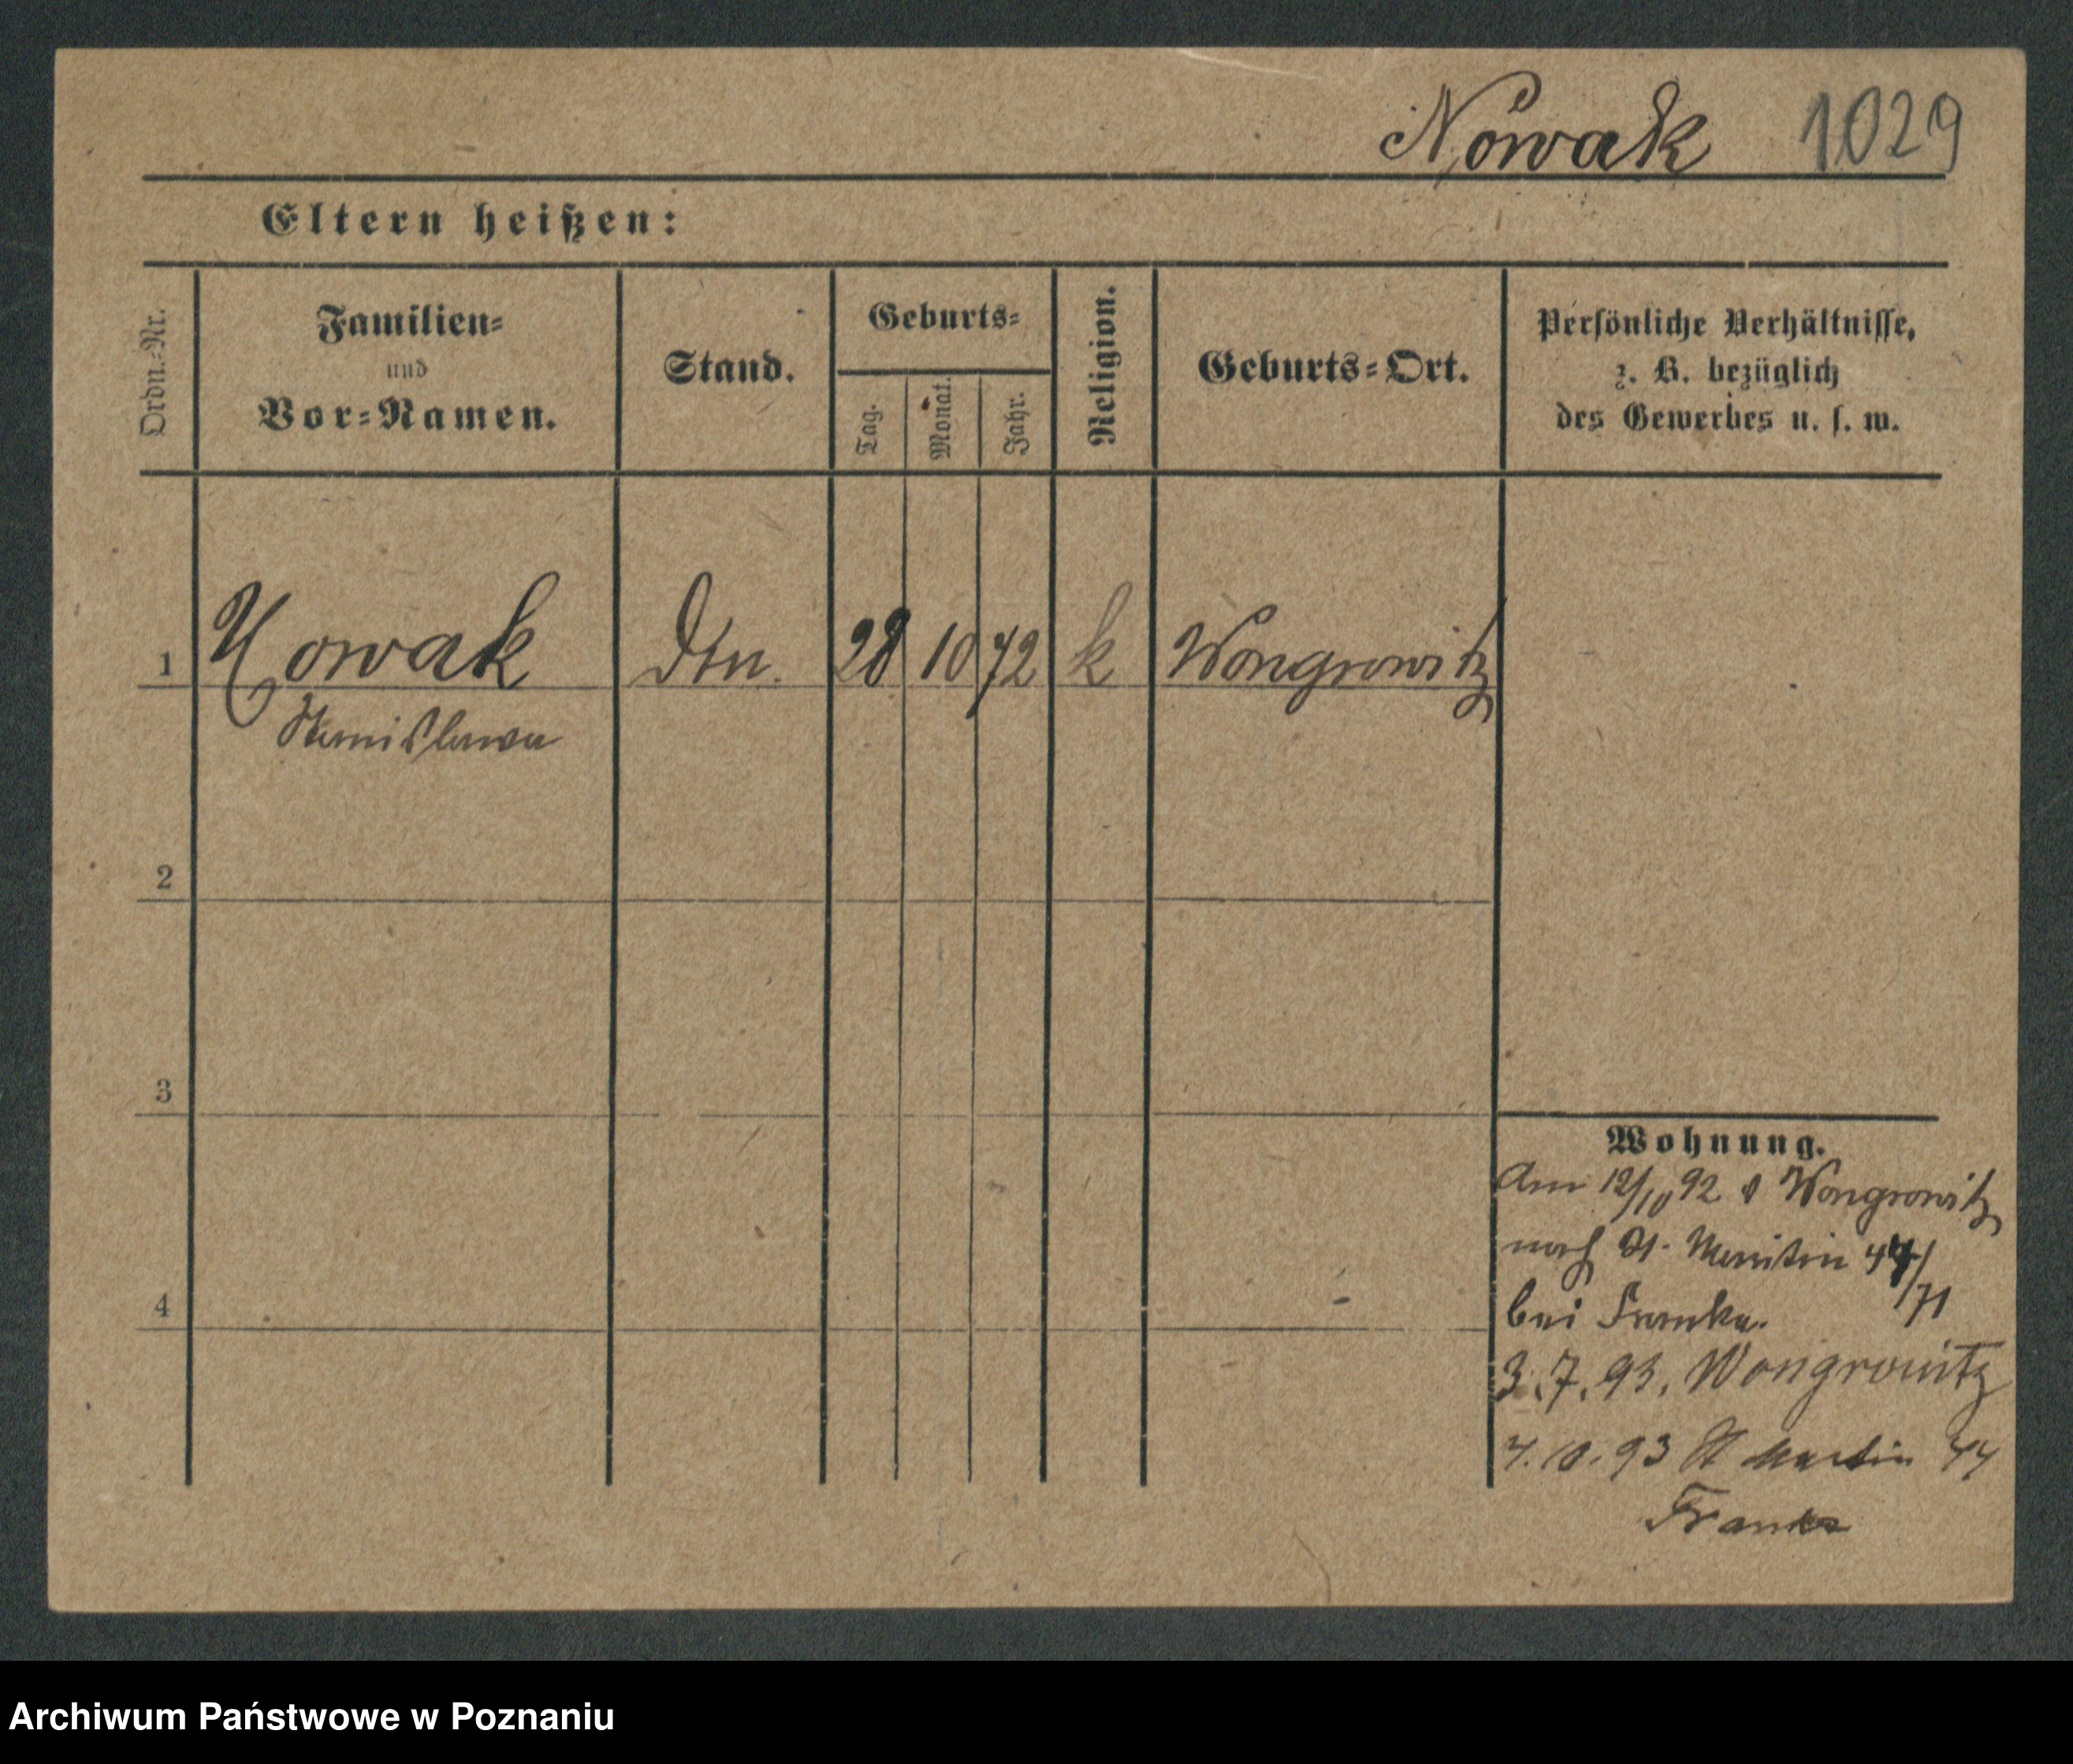 Nowak 1029
Eltern heißen:
Ordn.-Nr.
Familien-
und
Vor-Namen.
Stand.
Geburts-
Tag.
Monat.
Jahr.
Religion.
Geburts-Ort.
Persönliche Verhältnisse,
z. B. bezüglich
des Gewerbes u. s. w.
1 Nowak 28 10 72 k Wongrowitz
Stanislawa
2
3
4
Wohnung.
Am 12/10 92 Wongrowitz
nach St. Martin 44/
71
bei Franke.
3.7.93. Wongrowitz
4.10.93 St Martin 44
Franke
Archiwum Państwowe w Poznaniu